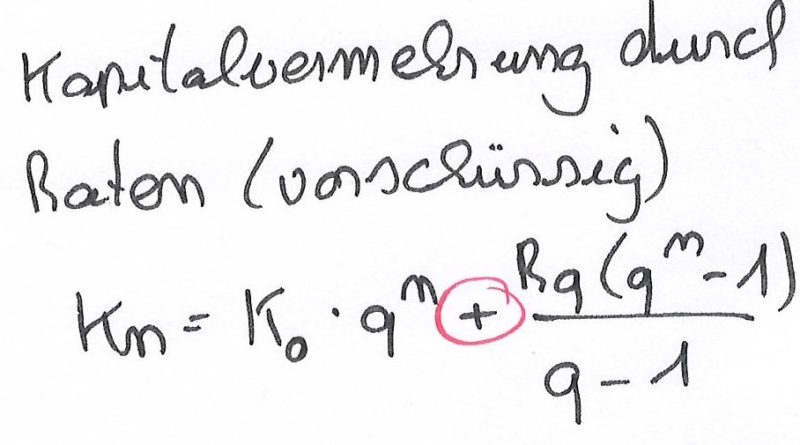 Kapitalvermehrung durch
Raten (vorschüssig)
Kn = K₀ · qⁿ + Rq (qⁿ - 1)
q - 1